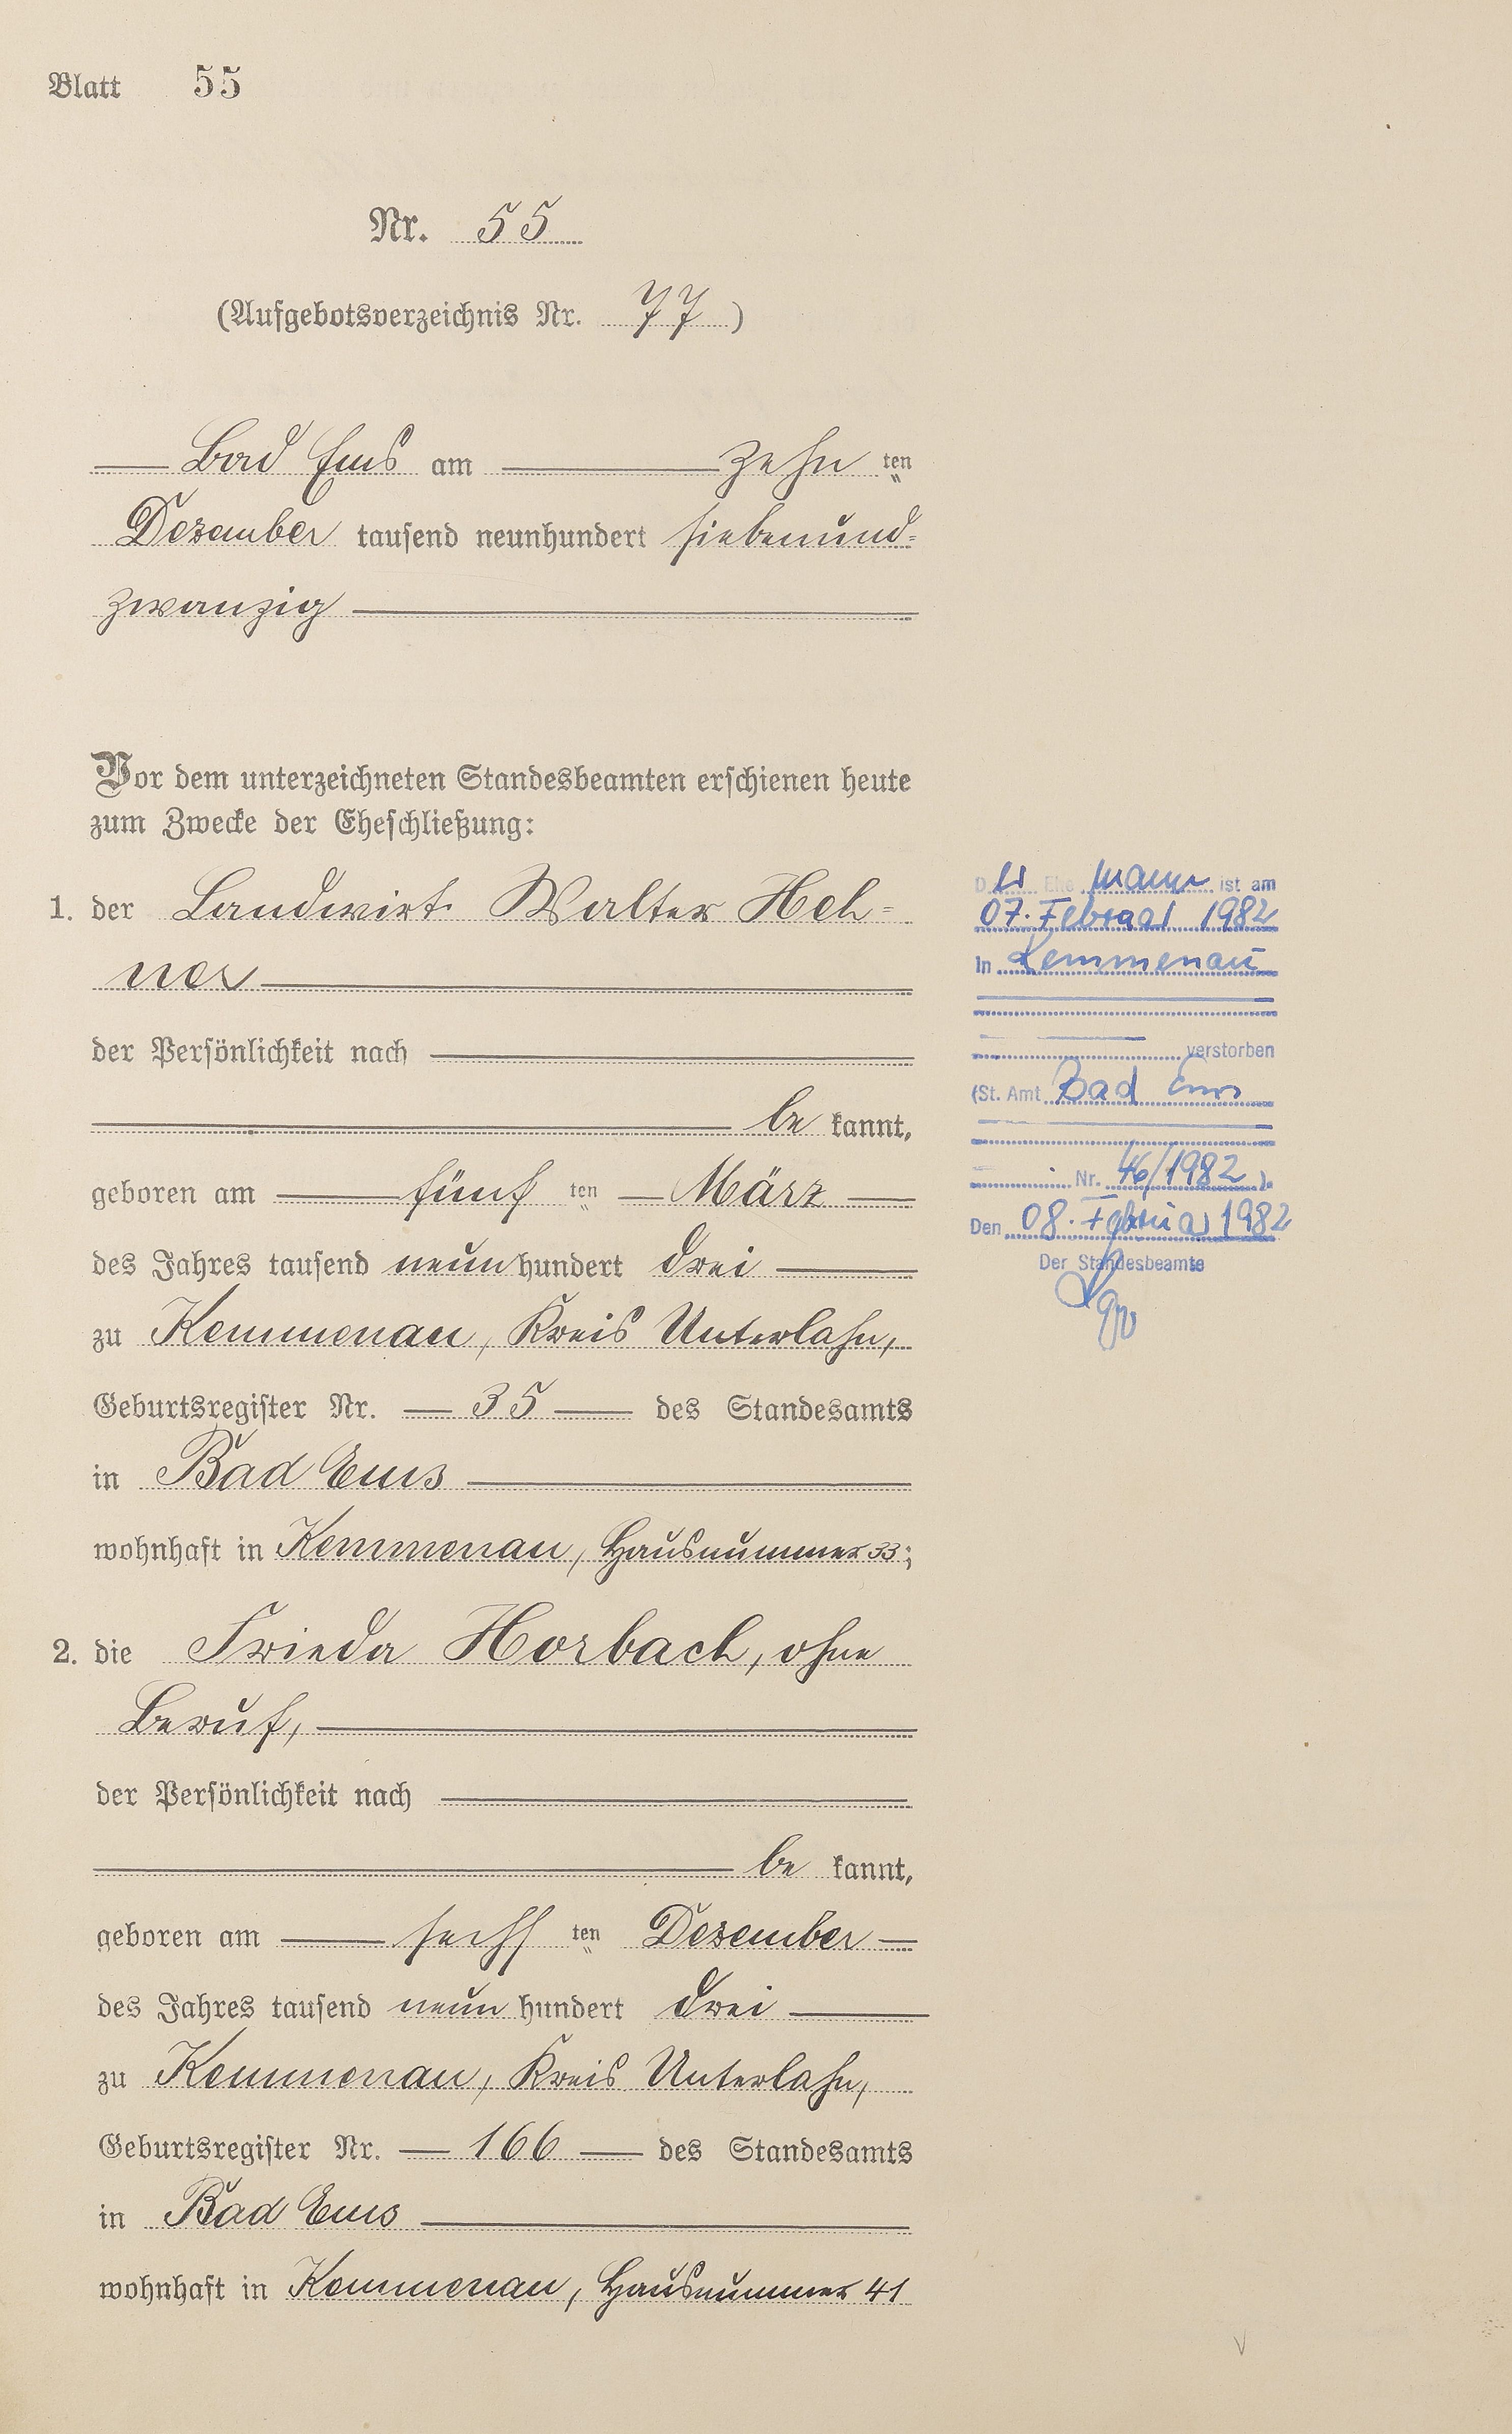 Blatt 55
Nr. 55
(Aufgebotsverzeichnis Nr. 77)
Bad Ems am zehn ten
Dezember tausend neunhundert siebenund=
zwanzig
Vor dem unterzeichneten Standesbeamten erschienen heute
zum Zwecke der Eheschließung:
1. der Landwirt Walter Heh=
ner
der Persönlichkeit nach
be kannt,
geboren am fünf ten März
des Jahres tausend neun hundert drei
zu Kemmenau, Kreis Unterlahn,
Geburtsregister Nr. 35 des Standesamts
in Bad Ems
wohnhaft in Kemmenau, Hausnummer 33;
2. die Frieda Horbach, ohne
Beruf,
der Persönlichkeit nach
be kannt,
geboren am sechs ten Dezember
des Jahres tausend neun hundert drei
zu Kemmenau, Kreis Unterlahn,
Geburtsregister Nr. 166 des Standesamts
in Bad Ems
wohnhaft in Kemmenau, Hausnummer 41
Der Ehe mann ist am
07. Februar 1982
in Kemmenau
verstorben
(St. Amt Bad Ems
Nr. 46/1982).
Den 08. Februar 1982
Der Standesbeamte